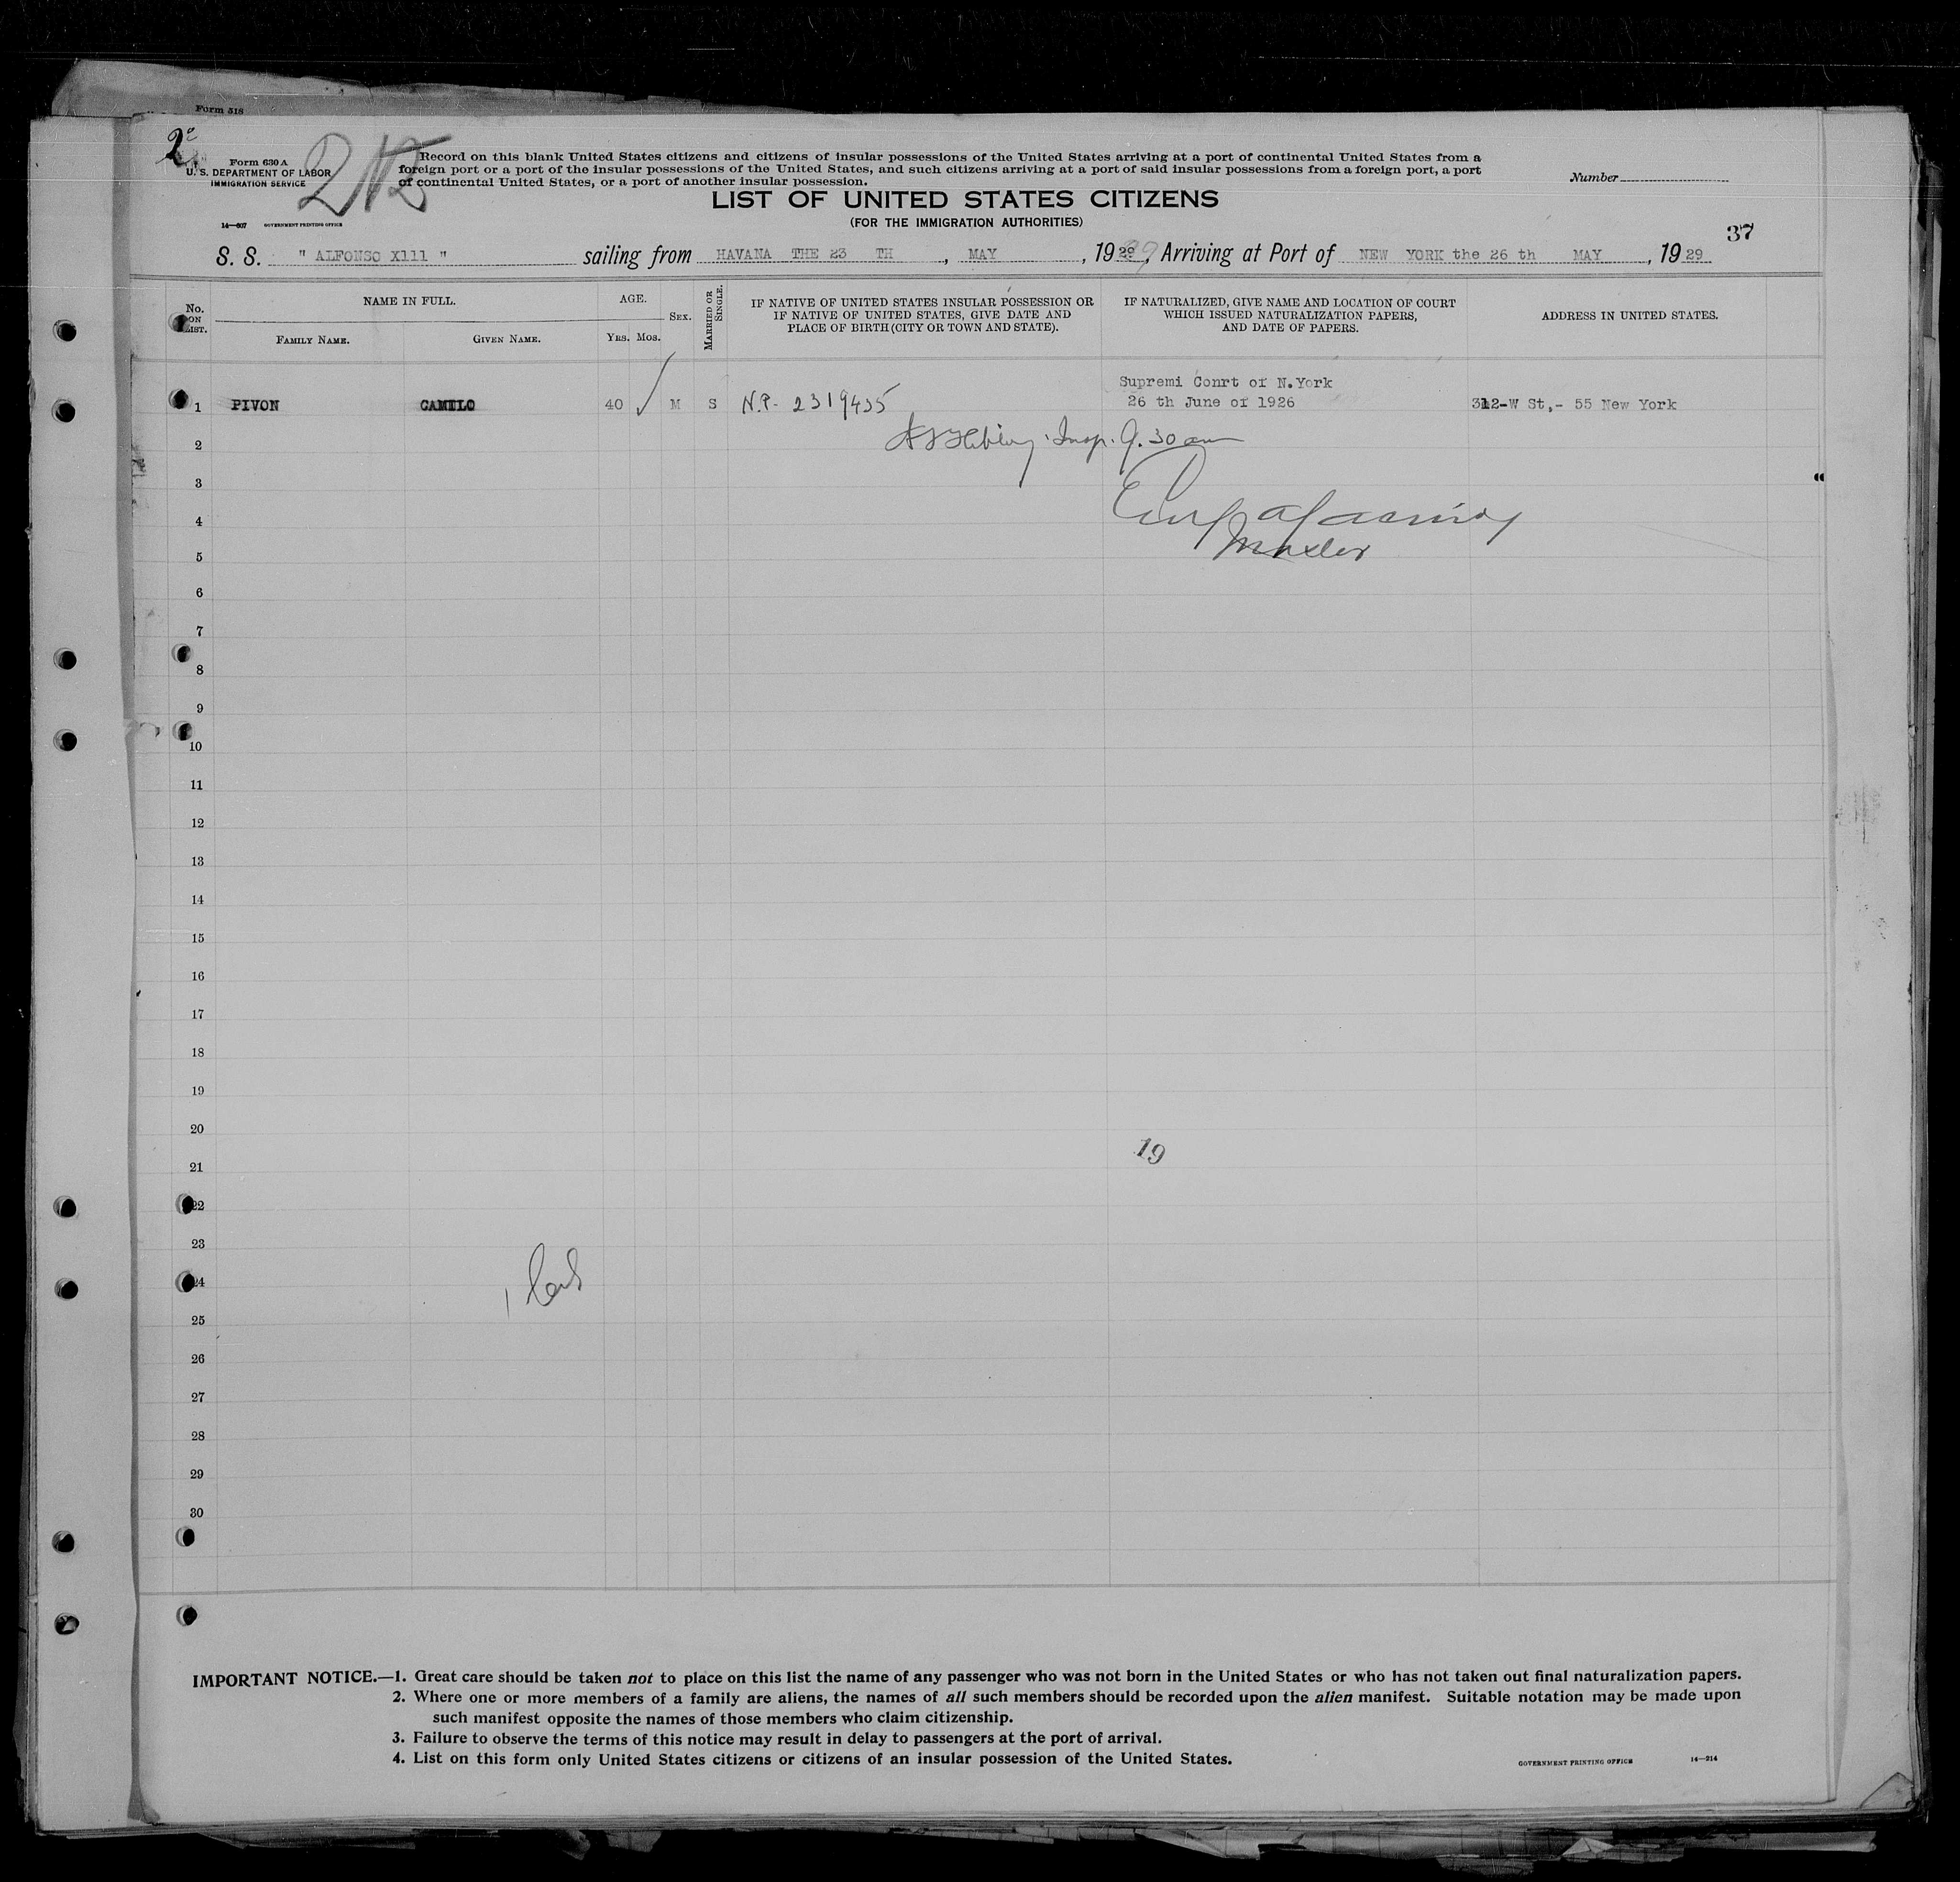 Form 518
2º
Form 630 A
U. S. DEPARTMENT OF LABOR
IMMIGRATION SERVICE
14—607 GOVERNMENT PRINTING OFFICE
Record on this blank United States citizens and citizens of insular possessions of the United States arriving at a port of continental United States from a
foreign port or a port of the insular possessions of the United States, and such citizens arriving at a port of said insular possessions from a foreign port, a port
of continental United States, or a port of another insular possession.
Number
LIST OF UNITED STATES CITIZENS
(FOR THE IMMIGRATION AUTHORITIES)
37
S. S. " ALFONSO X111 " sailing from HAVANA THE 23 TH , MAY , 1929, Arriving at Port of NEW YORK the 26 th MAY , 1929
No. ON LIST.
NAME IN FULL.
FAMILY NAME. GIVEN NAME.
AGE.
YRS. MOS.
SEX.
MARRIED OR SINGLE.
IF NATIVE OF UNITED STATES INSULAR POSSESSION OR
IF NATIVE OF UNITED STATES, GIVE DATE AND
PLACE OF BIRTH (CITY OR TOWN AND STATE).
IF NATURALIZED, GIVE NAME AND LOCATION OF COURT
WHICH ISSUED NATURALIZATION PAPERS,
AND DATE OF PAPERS.
ADDRESS IN UNITED STATES.
Supremi Conrt of N.York
1 PIVON CAMILO 40 M S N.P. 2319435 26 th June of 1926 312-W St,- 55 New York
2 Insp. 9.30 am
3
4
5 Master
6
7
8
9
10
11
12
13
14
15
16
17
18
19
20
19
21
22
23
24
25
26
27
28
29
30
IMPORTANT NOTICE.—1. Great care should be taken not to place on this list the name of any passenger who was not born in the United States or who has not taken out final naturalization papers.
2. Where one or more members of a family are aliens, the names of all such members should be recorded upon the alien manifest. Suitable notation may be made upon
such manifest opposite the names of those members who claim citizenship.
3. Failure to observe the terms of this notice may result in delay to passengers at the port of arrival.
4. List on this form only United States citizens or citizens of an insular possession of the United States.
GOVERNMENT PRINTING OFFICE 14—214